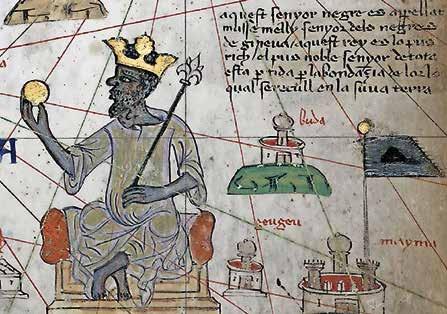 aquest senyor negre es apellat
musse melly senyor dels negres
de gineua aquest rey es lo pus
rich el pus noble senyor de tota
esta partida per labondacia de lor
qual se recull en la suua terra
buda
geugeu
mayma
A